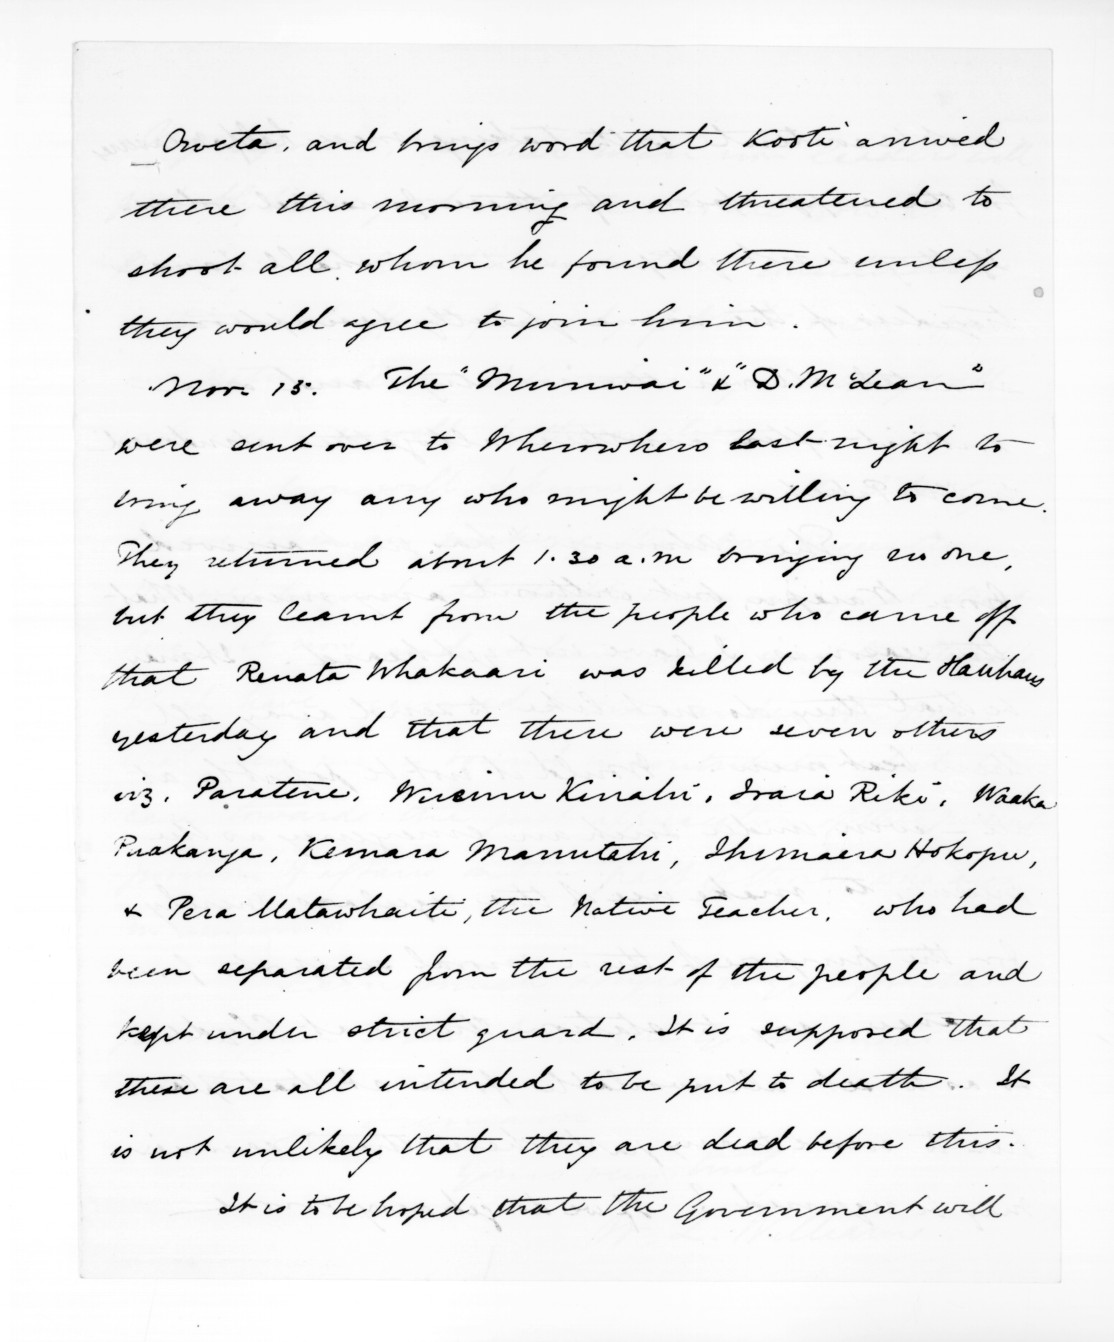 Oweta, and brings word that Kooti arrived
there this morning and threatened to
shoot all whom he found there unless
they would agree to join him.
Nov. 15. The "Muniwai" & "D. McLean"
were sent over to Wherowhero last night to
bring away any who might be willing to come.
They returned about 1.30 a.m bringing no one,
but they learnt from the people who came off
that Renata Whakaari was killed by the Hauhaus
yesterday and that there were seven others
viz. Paratene, Wirimu Kiriahi, Iraia Riki, Waaka
Puakanga, Kemara Manutahi, Ihimaera Hokopu,
& Pera Matawhaiti, the Native Teacher, who had
been separated from the rest of the people and
kept under strict guard. It is supposed that
these are all intended to be put to death. It
is not unlikely that they are dead before this.
It is to be hoped that the Government will